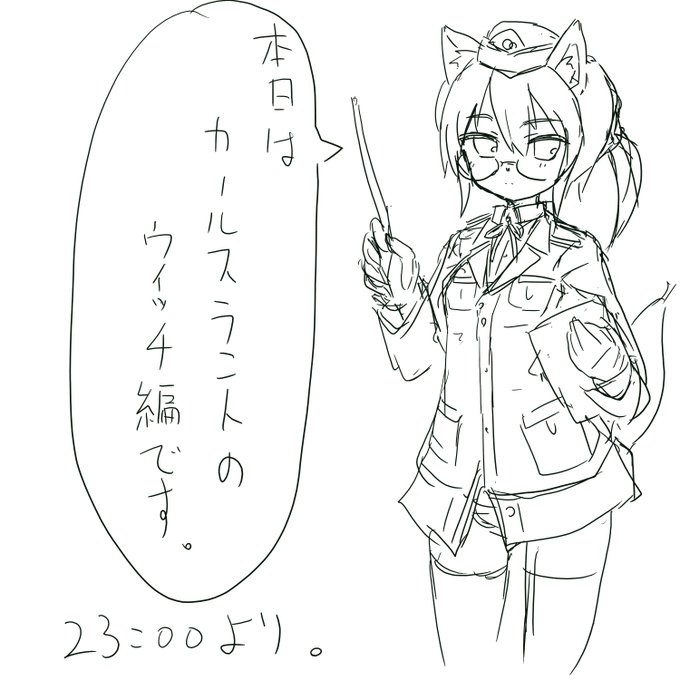 本日は
カールスラントの
ウィッチ編です。
23:00より。